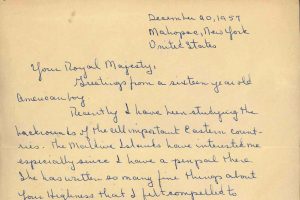 December 20, 1957
Mahopac, New York
United States
Your Royal Majesty,
Greetings from a sixteen year old
American boy.
Recently I have been studying the
backrounds of the all important Eastern count-
ries. The Maldive Islands have interested me
especially since I have a penpal there.
She has written so many fine things about
Your Highness that I felt compelled to